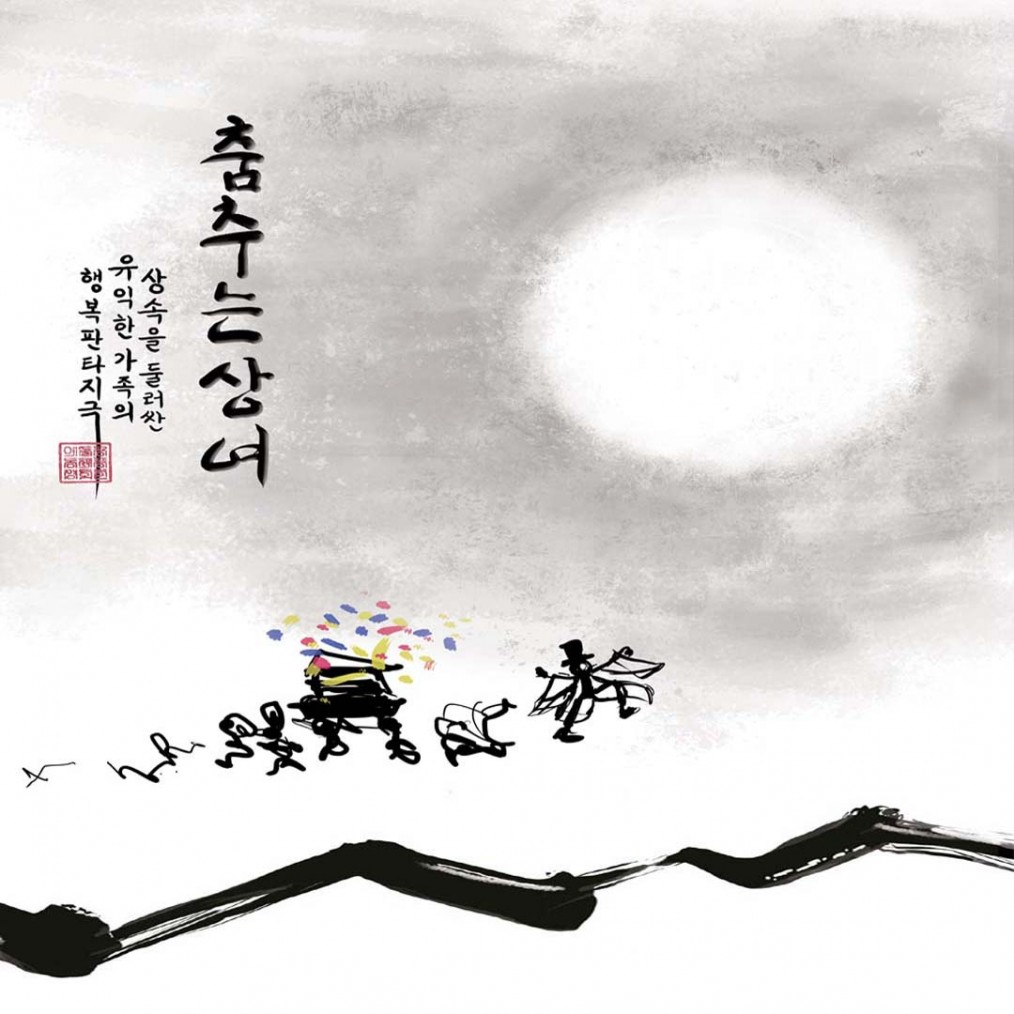 춤추는상여
상속을 둘러싼
유익한 가족의
행복판타지극